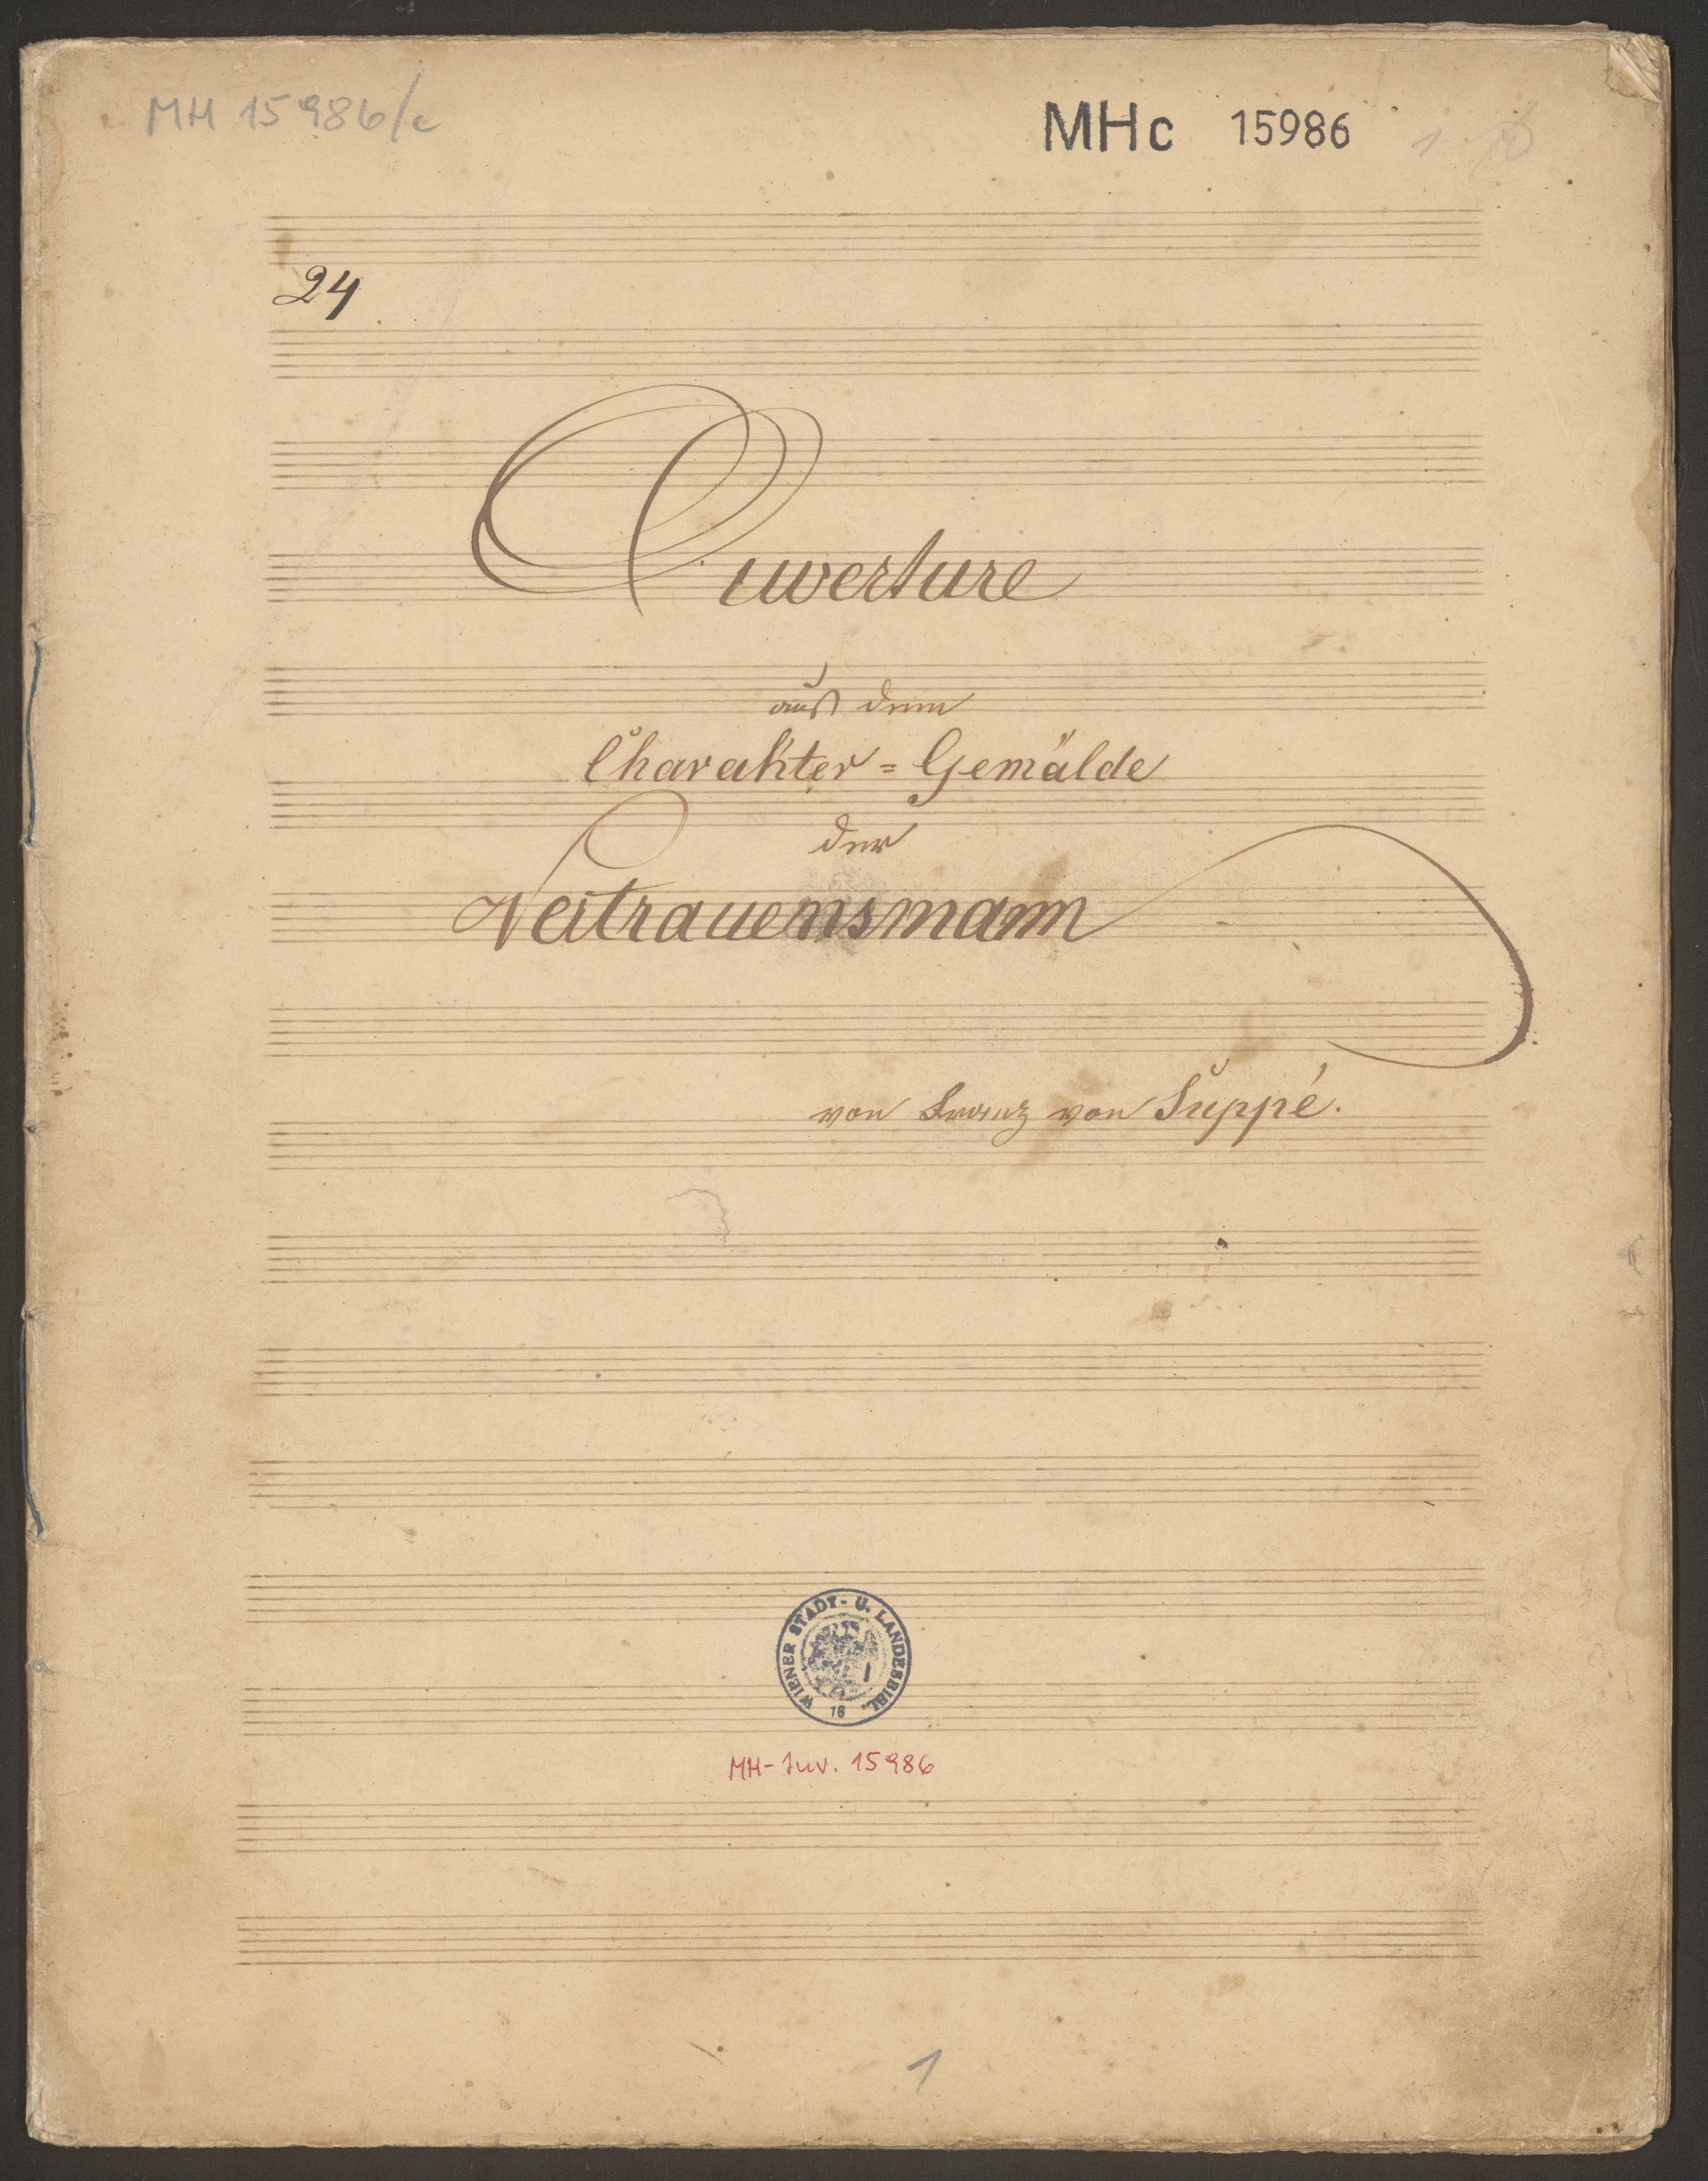 MH 15986/c
MHc 15986
24
Ouverture
aus dem
Charakter=Gemälde
der
Vertrauensmann
von Franz von Suppé.
WIENER STADT- U. LANDESBIBL.
16
MH-Inv. 15986
1